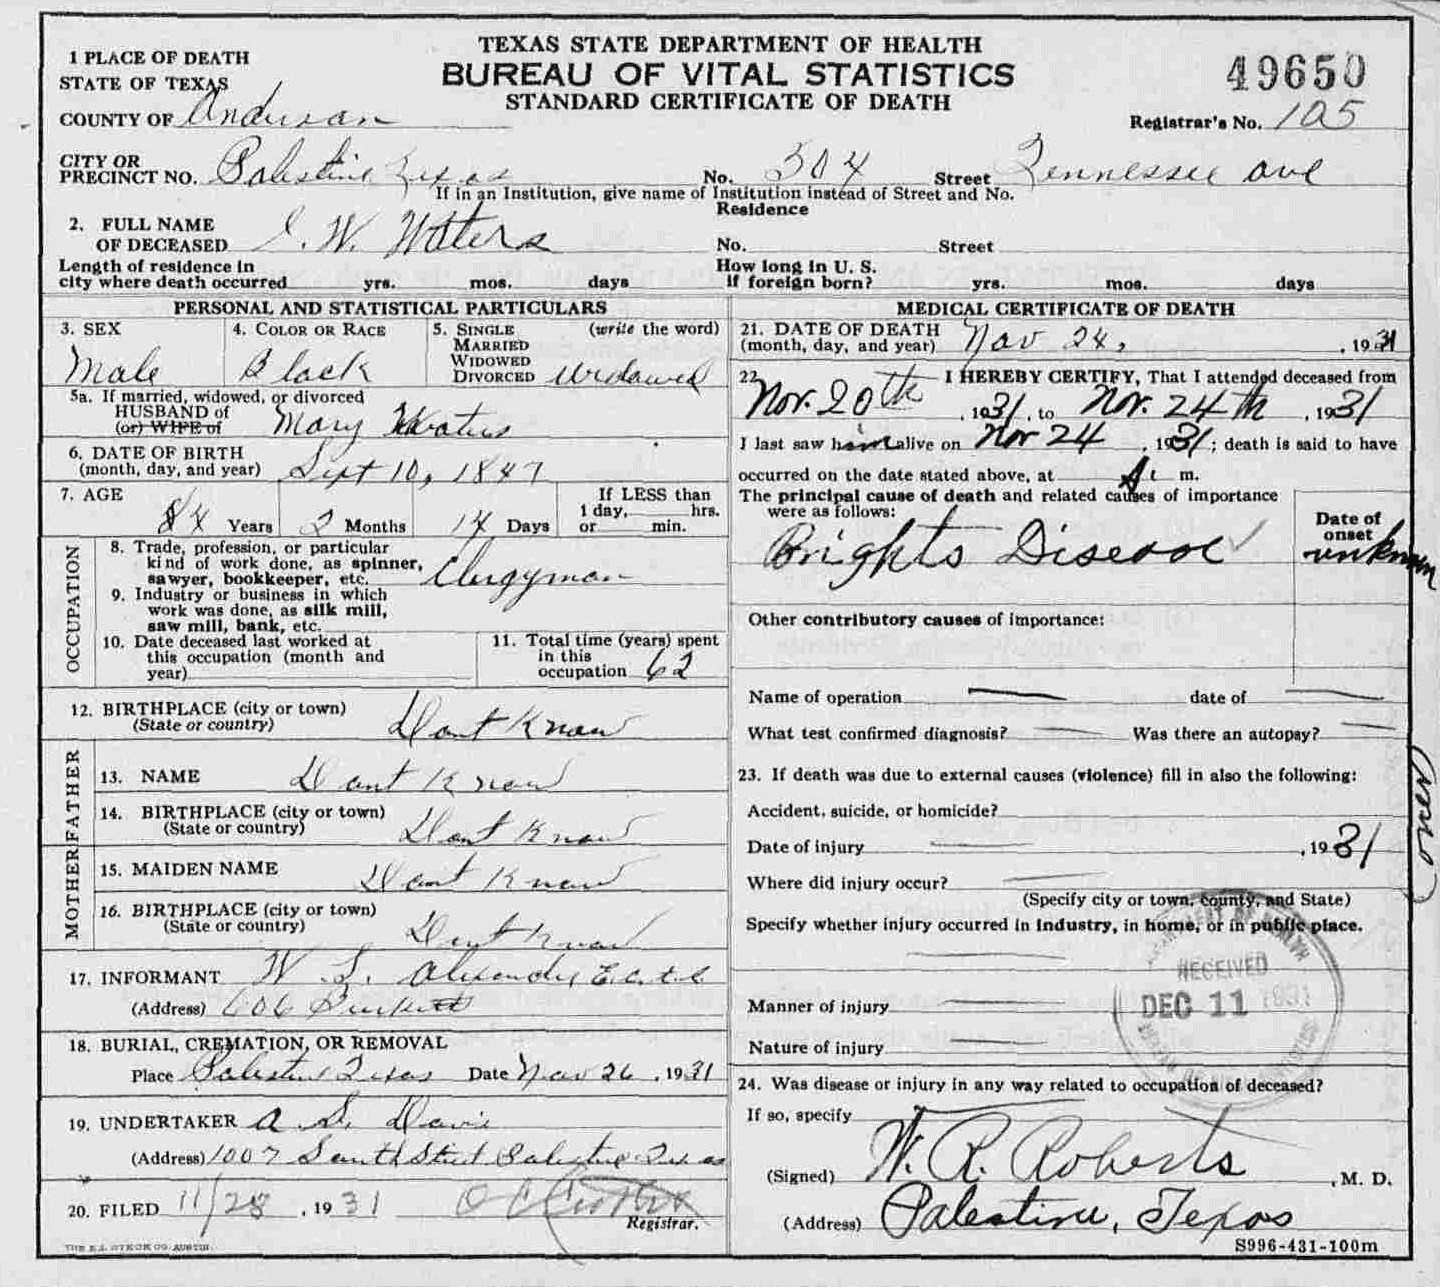 TEXAS STATE DEPARTMENT OF HEALTH
BUREAU OF VITAL STATISTICS
STANDARD CERTIFICATE OF DEATH
49650
Registrar's No. 105
1 PLACE OF DEATH
STATE OF TEXAS
COUNTY OF Anderson
CITY OR
PRECINCT NO. Palestine Texas No. 504 Street Tennessee ave
If in an Institution, give name of Institution instead of Street and No.
2. FULL NAME
OF DECEASED W. Waters
Residence
No. Street
Length of residence in
city where death occurred yrs. mos. days
How long in U. S.
if foreign born? yrs. mos. days
PERSONAL AND STATISTICAL PARTICULARS
3. SEX
Male
4. COLOR OR RACE
Black
5. SINGLE (write the word)
MARRIED
WIDOWED
DIVORCED Widowed
5a. If married, widowed, or divorced
HUSBAND of
(or) WIFE of Mary Waters
6. DATE OF BIRTH
(month, day, and year) Sept 10, 1847
7. AGE
84 Years 2 Months 14 Days
If LESS than
1 day, hrs.
or min.
OCCUPATION
8. Trade, profession, or particular
kind of work done, as spinner,
sawyer, bookkeeper, etc. Clergyman
9. Industry or business in which
work was done, as silk mill,
saw mill, bank, etc.
10. Date deceased last worked at
this occupation (month and
year)
11. Total time (years) spent
in this
occupation 62
12. BIRTHPLACE (city or town)
(State or country) Dont Know
FATHER
13. NAME Dont Know
14. BIRTHPLACE (city or town)
(State or country) Dont Know
MOTHER
15. MAIDEN NAME Dont Know
16. BIRTHPLACE (city or town)
(State or country) Dont Know
17. INFORMANT W. L. Alexander
(Address) 606
18. BURIAL, CREMATION, OR REMOVAL
Place Palestine Texas Date Nov 26, 1931
19. UNDERTAKER A Davis
(Address) 1007 South Street Palestine Texas
20. FILED 11/28, 1931
Registrar.
MEDICAL CERTIFICATE OF DEATH
21. DATE OF DEATH
(month, day, and year) Nov 24, , 1931
22. I HEREBY CERTIFY, That I attended deceased from
Nov. 20th , 1931, to Nov. 24th , 1931
I last saw him alive on Nov 24 , 1931; death is said to have
occurred on the date stated above, at m.
The principal cause of death and related causes of importance
were as follows:
Date of
onset
Brights Disease unknown
Other contributory causes of importance:
Name of operation date of
What test confirmed diagnosis? Was there an autopsy?
23. If death was due to external causes (violence) fill in also the following:
Accident, suicide, or homicide?
Date of injury , 1931
Where did injury occur?
(Specify city or town, county, and State)
Specify whether injury occurred in industry, in home, or in public place.
RECEIVED
DEC 11 1931
Manner of injury
Nature of injury
24. Was disease or injury in any way related to occupation of deceased?
If so, specify
(Signed) W. R. Roberts , M. D.
(Address) Palestine, Texas
S996-431-100m
over